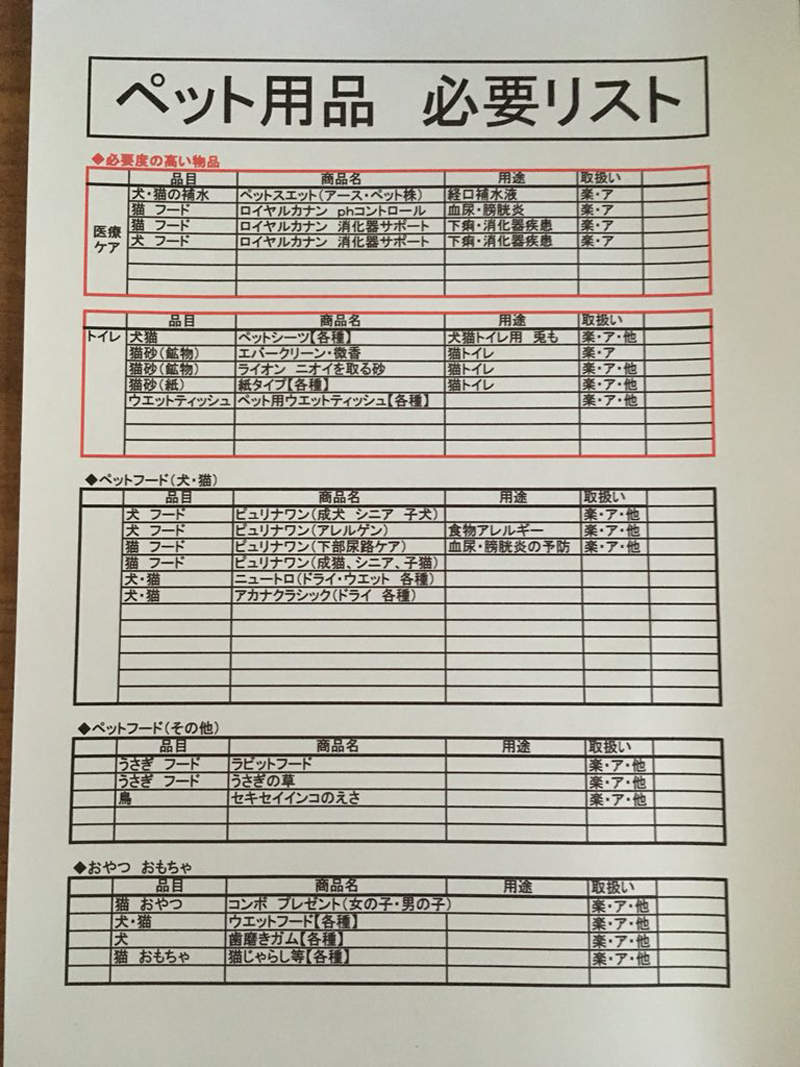 ペット用品 必要リスト
◆必要度の高い物品
品目 商品名 用途 取扱い
医療ケア
犬・猫の補水 ペットスエット(アース・ペット株) 経口補水液 楽・ア
猫 フード ロイヤルカナン phコントロール 血尿・膀胱炎 楽・ア
猫 フード ロイヤルカナン 消化器サポート 下痢・消化器疾患 楽・ア
犬 フード ロイヤルカナン 消化器サポート 下痢・消化器疾患 楽・ア
品目 商品名 用途 取扱い
トイレ 犬猫 ペットシーツ【各種】 犬猫トイレ用 兎も 楽・ア・他
猫砂(鉱物) エバークリーン・微香 猫トイレ 楽・ア
猫砂(鉱物) ライオン ニオイを取る砂 猫トイレ 楽・ア・他
猫砂(紙) 紙タイプ【各種】 猫トイレ 楽・ア・他
ウエットティッシュ ペット用ウエットティッシュ【各種】 楽・ア・他
◆ペットフード(犬・猫)
品目 商品名 用途 取扱い
犬 フード ピュリナワン(成犬 シニア 子犬) 楽・ア・他
犬 フード ピュリナワン(アレルゲン) 食物アレルギー 楽・ア・他
猫 フード ピュリナワン(下部尿路ケア) 血尿・膀胱炎の予防 楽・ア・他
猫 フード ピュリナワン(成猫、シニア、子猫)
犬・猫 ニュートロ(ドライ・ウエット 各種)
犬・猫 アカナクラシック(ドライ 各種)
◆ペットフード(その他)
品目 商品名 用途 取扱い
うさぎ フード ラビットフード 楽・ア・他
うさぎ フード うさぎの草 楽・ア・他
鳥 セキセイインコのえさ 楽・ア・他
◆おやつ おもちゃ
品目 商品名 用途 取扱い
猫 おやつ コンボ プレゼント(女の子・男の子) 楽・ア・他
犬・猫 ウエットフード【各種】 楽・ア・他
犬 歯磨きガム【各種】 楽・ア・他
猫 おもちゃ 猫じゃらし等【各種】 楽・ア・他